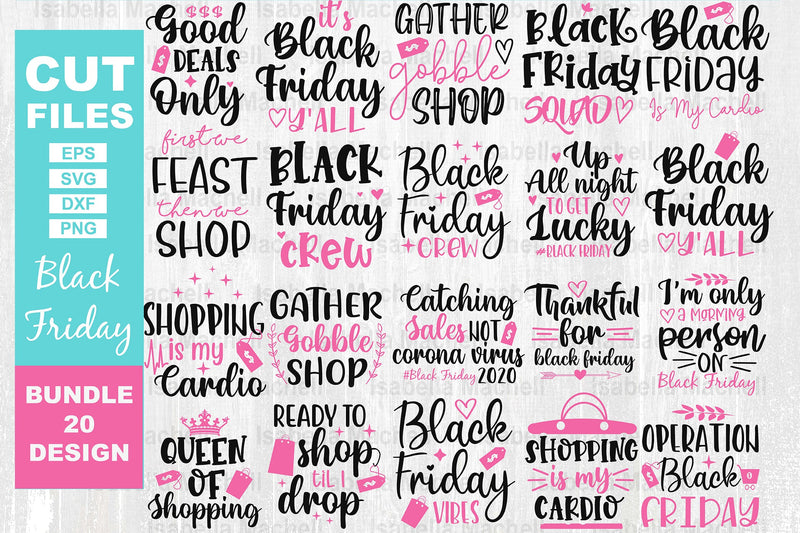 CUT
FILES
EPS
SVG
DXF
PNG
Black
Friday
BUNDLE
20
DESIGN
$$$
Good
DEALS
Only
it's
Black
Friday
Y'ALL
GATHER
gobble
SHOP
Black
FRiday
SQUAD
Black
FRIDAY
Is My Cardio
first we
FEAST
then we
SHOP
BLACK
Friday
crew
Black
Friday
CREW
Up
All night
TO GET
Lucky
#BLACK FRIDAY
Black
Friday
Y'ALL
SHOPPING
is my
Cardio
GATHER
Gobble
SHOP
Catching
Sales NOT
corona virus
#Black Friday 2020
Thankful
for
black friday
I'm only
a MORNING
person
ON
Black Friday
QUEEN
OF
Shopping
READY TO
shop
til I
drop
Black
Friday
VIBES
SHOPPING
is my
CARDIO
OPERATION
Black
FRIDAY
Isabella Machell